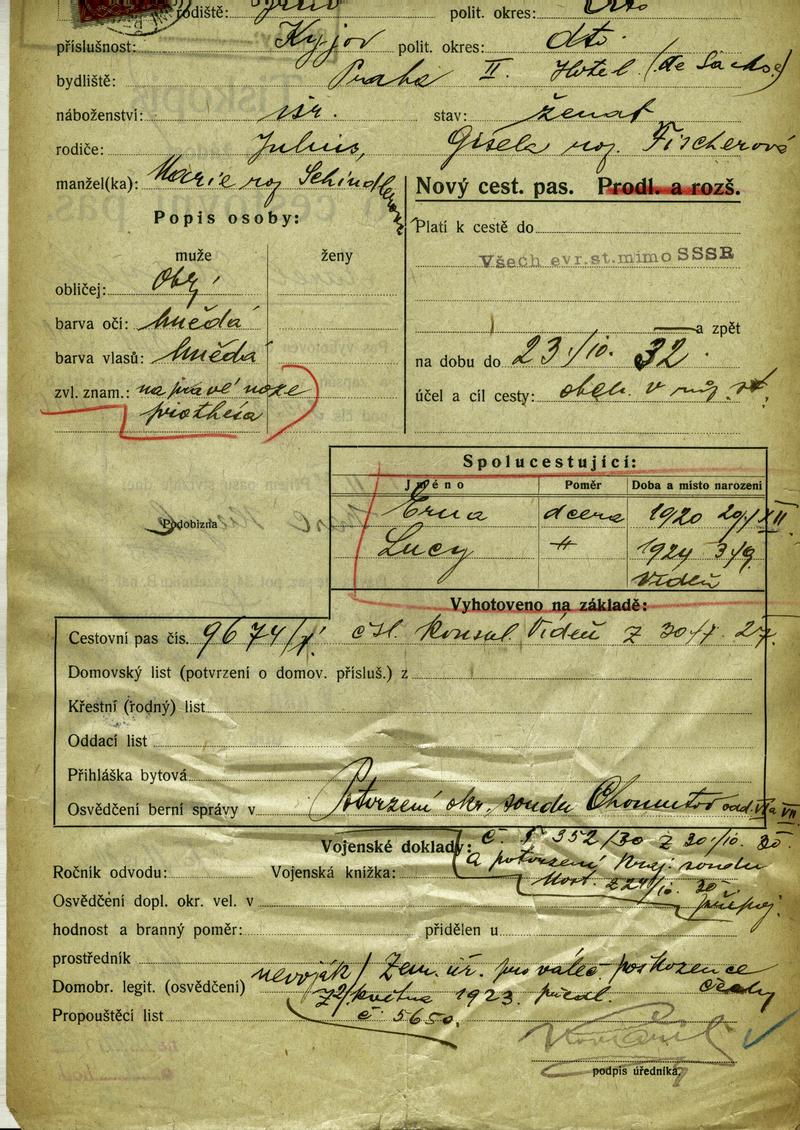 rodiště: polit. okres:
příslušnost: Kyjov polit. okres: dto.
bydliště: Praha II. Hotel (de Saxe)
náboženství: isr. stav: ženat
rodiče: Julius, Gisela roz. Fischerová
manžel(ka): Marie roz. Schindlerová
Nový cest. pas. Prodl. a rozš.
Popis osoby:
Platí k cestě do
muže ženy
Všech evr. st. mimo SSSR
obličej: obl.
barva očí: hnědá
a zpět
barva vlasů: hnědá
na dobu do 23./10. 32.
zvl. znam.: na pravé noze
prothesa
účel a cíl cesty: obch.
Spolucestující:
Jméno Poměr Doba a místo narození
Erna dcera 1920 29/XII
Podobizna
Lucy " 1924 3/9.
Vídeň
Vyhotoveno na základě:
Cestovní pas čís. 9674/ čsl. konsul. Vídeň z 30/ 27.
Domovský list (potvrzení o domov. přísluš.) z
Křestní (rodný) list
Oddací list
Přihláška bytová
Osvědčení berní správy v Potvrzení okr. soudu Chomutov odd. VI a VII
Vojenské doklady: č. 352/30 z 20./10. 30.
a potvrzení kraj. soudu
Ročník odvodu: Vojenská knížka:
Most. z 24/10. 30.
Osvědčení dopl. okr. vel. v připoj.
hodnost a branný poměr: přidělen u
prostředník
nevoják / Zem. úř. pro váleč. poškozence
Domobr. legit. (osvědčení) z 2/května 1923 předl. Čechy
Propouštěcí list č. 5650.
podpis úředníka.